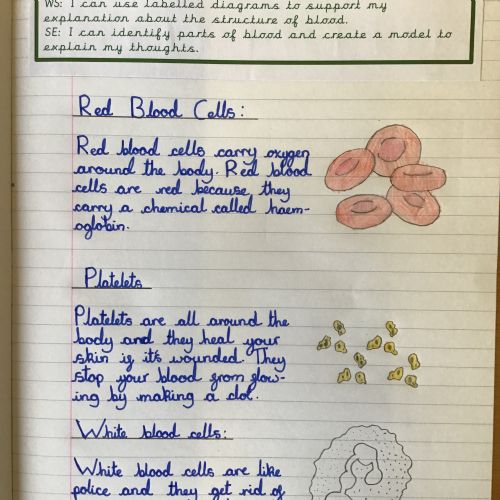 WS: I can use labelled diagrams to support my
explanation about the structure of blood.
SE: I can identify parts of blood and create a model to
explain my thoughts.
Red Blood Cells:
Red blood cells carry oxygen
around the body. Red blood
cells are red because they
carry a chemical called haem-
oglobin.
Platelets
Platelets are all around the
body and they heal your
skin if it's wounded. They
stop your blood from flow-
ing by making a clot.
White blood cells:
White blood cells are like
police and they get rid of